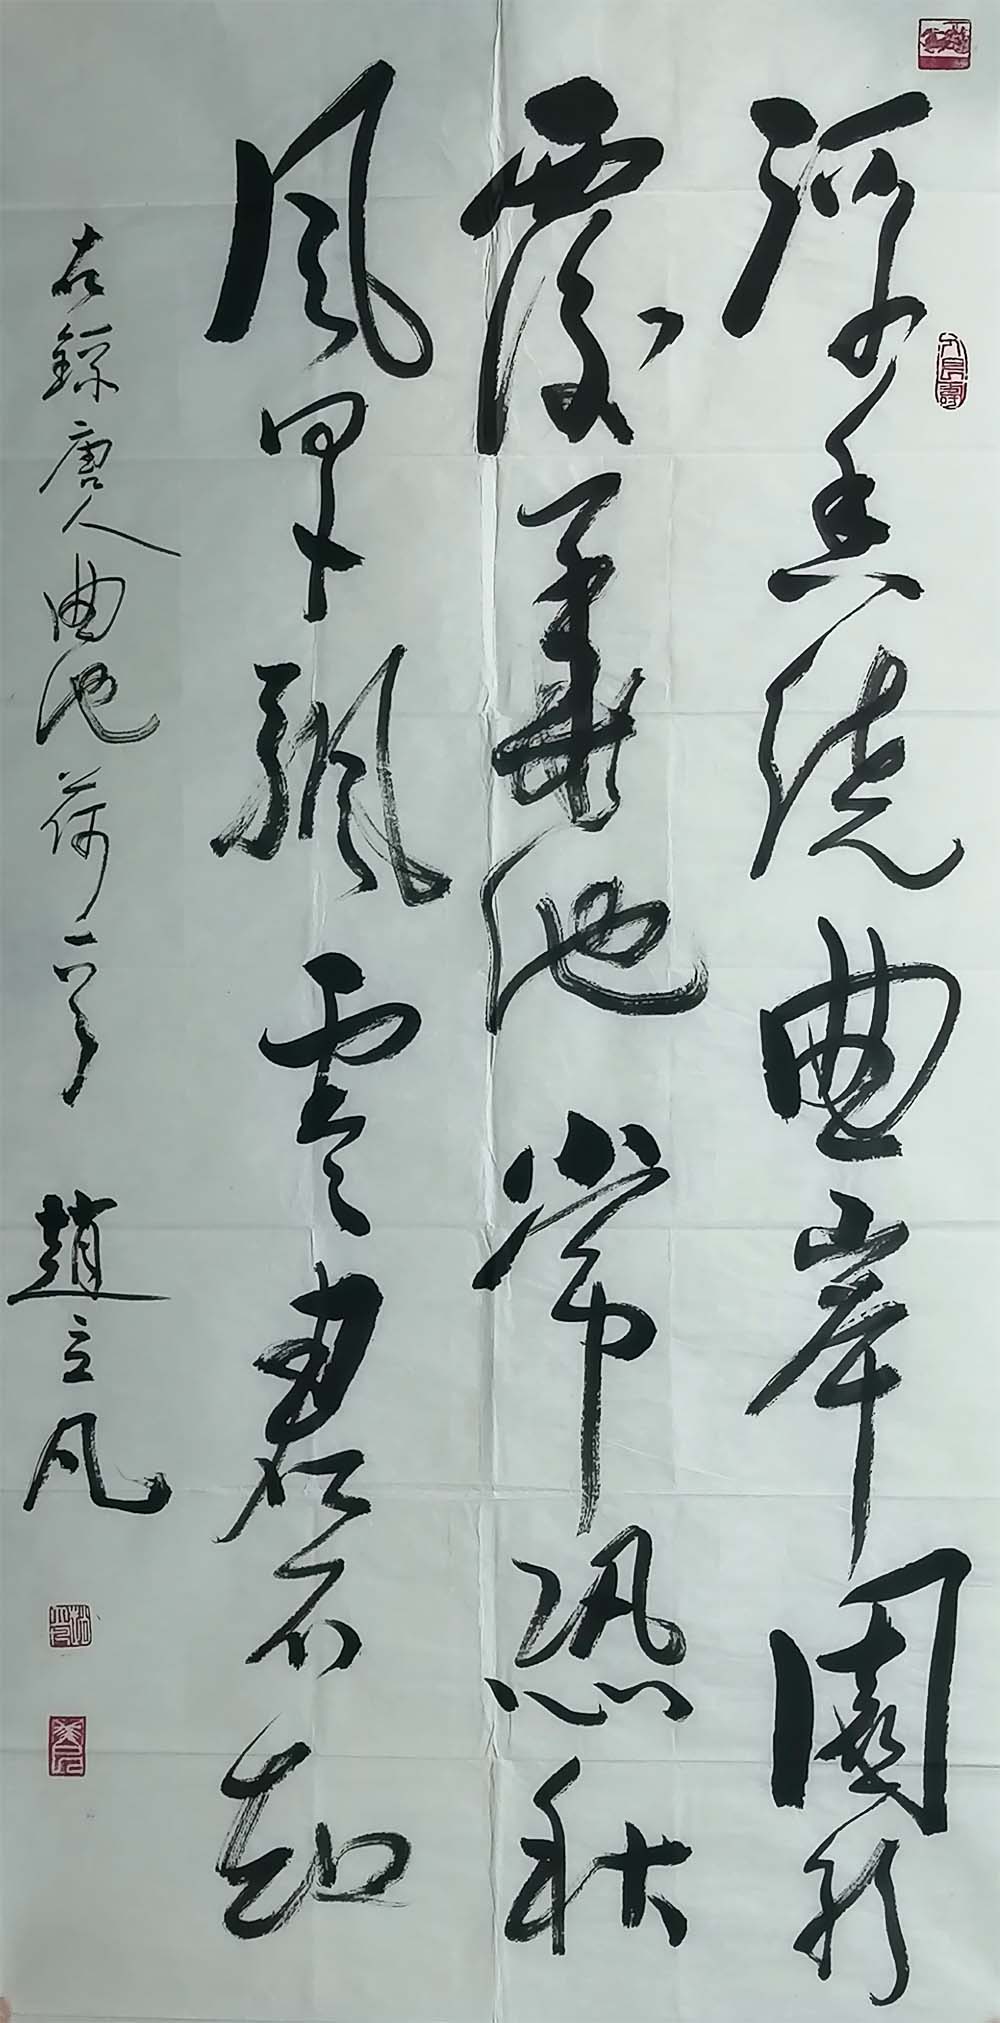 浮香繞曲岸園影
覆華池常恐秋
風早飄零君不知
右錄唐人曲池荷一首 趙立凡